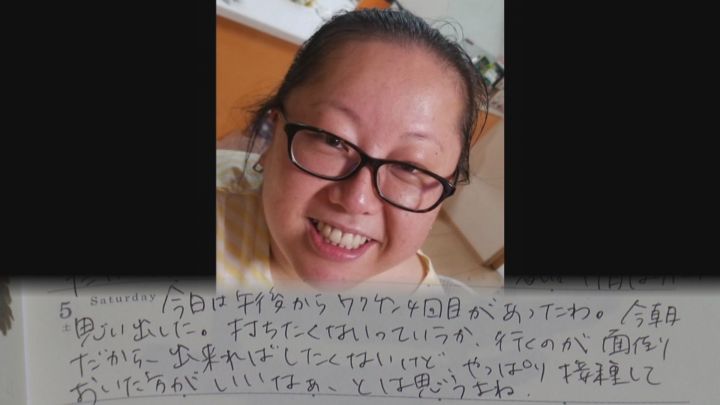 5 Saturday 今日は午後からワクチン4回目があったわ。今朝
土 思い出した。打ちたくないっていうか、行くのが面倒
だから、出来ればしたくないけど、やっぱり接種して
おいた方がいいなぁ、とは思うよね